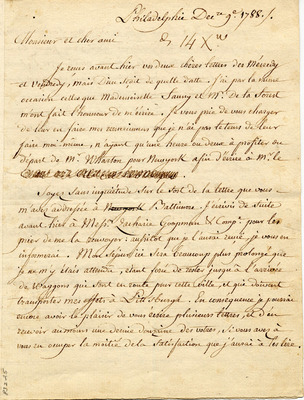 Philadelphie Dec.re 9e 1788./.
Monsieur et cher ami
14 X.re
Je reçus avant hier vos deux chères lettres des Mercredy
et Vendredy, mais l'un dépit de quelle datte. J'ai par la même
occasion celles que Mademoiselle Sauny et Mr. De la Forest
m'ont fait l'honneur de m'écrire. Je vous prie de vous charger
de leur en faire mes remerciemens que je n'ai pas le tems de leur
faire moi même, n'ayant qu'une heure ou deux à profiter au
départ de Mr. Wharton pour Newyork afin d'écrire à Mr. le
Soyez sans inquiétude sur le sort de la lettre que vous
m'avez addressée à Newyork. Je l'attends. J'écrivis de suite
avant hier à Messrs. Zacharie Coopman & Comp. pour les
prier de me la renvoyer; aussitot que je l'aurai reçue je vous en
informerai. Mon séjour ici sera beaucoup plus prolongé que
je ne m'y étais attendu, étant forcé de rester jusqu'à l'arrivée
de Waggons qui sont en route pour cette ville, et qui doivent
transporter mes effets à Pittsburgh. En conséquence je pourrai
encore avoir le plaisir de vous écrire plusieurs lettres, et d'en
recevoir au moins une demie douzaine des votres, si vous avez à
vous en occuper la moitié de la satisfaction que j'aurai à les lire.